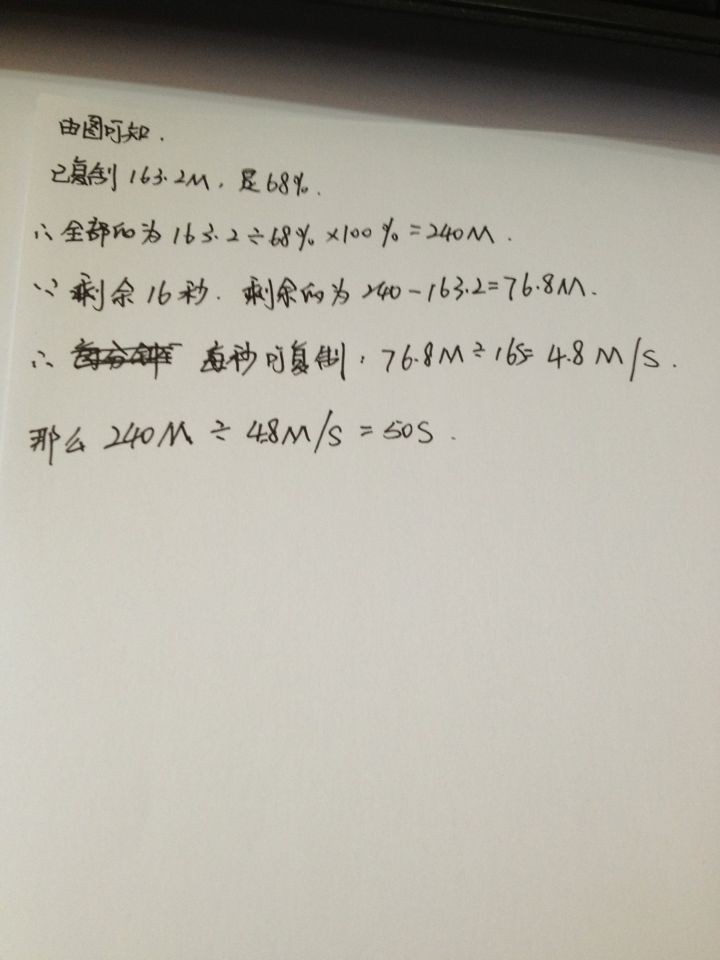 由图可知.
已复制163.2M,是68%.
∴全部的为163.2÷68%×100%=240M.
∵剩余16秒.剩余的为240-163.2=76.8M.
∴每秒可复制,76.8M÷16S=4.8M/S.
那么240M÷4.8M/S=50S.